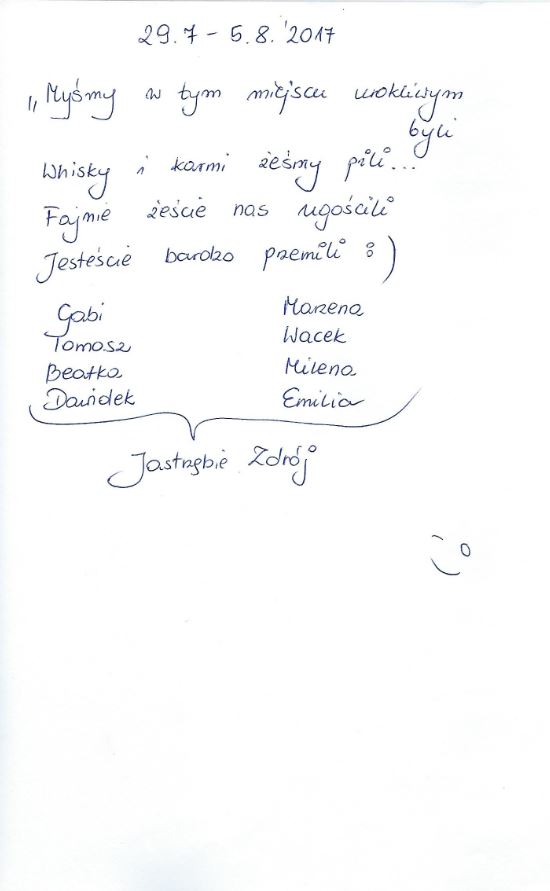 29.7 - 5.8.'2017
„Myśmy w tym miejscu urokliwym
byli
Whisky i karmi żeśmy pili...
Fajnie żeście nas ugościli
Jesteście bardzo przemili :)
Gabi Marzena
Tomasz Wacek
Beatka Milena
Dawidek Emilia
Jastrzębie Zdrój